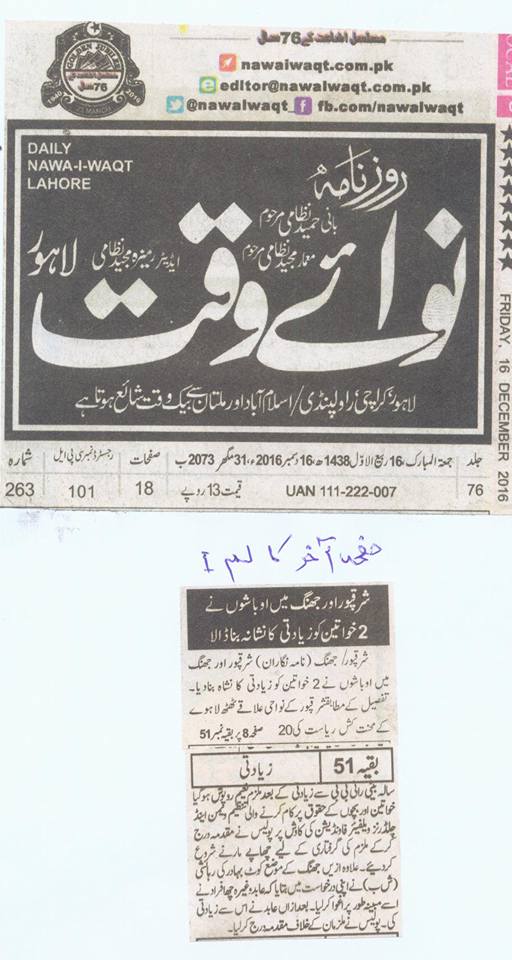 مسلسل اشاعت کے 76 سال
GOLDEN JUBILEE
مسلسل اشاعت کے
76 سال
1940
2016
23 MARCH
nawaiwaqt.com.pk
editor@nawaiwaqt.com.pk
@nawaiwaqt_ fb.com/nawaiwaqt
DAILY
NAWA-I-WAQT
LAHORE
روزنامہ
بانی حمید نظامی مرحوم
معمار مجید نظامی مرحوم
ایڈیٹر رمیزہ مجید نظامی
نوائے وقت
لاہور
لاہور، کراچی، راولپنڈی/اسلام آباد اور ملتان سے بیک وقت شائع ہوتا ہے
جلد جمعۃ المبارک، 16 ربیع الاوّل 1438ھ، 16 دسمبر 2016ء، 31 مگھر 2073ب صفحات رجسٹرڈ نمبر سی پی ایل شمارہ
76 UAN 111-222-007 قیمت 13 روپے 18 101 263
FRIDAY, 16 DECEMBER 2016
صفحہ آخر کالم I
شرقپور اور جھنگ میں اوباشوں نے
2 خواتین کو زیادتی کا نشانہ بنا ڈالا
شرقپور/ جھنگ (نامہ نگاران) شرقپور اور جھنگ
میں اوباشوں نے 2 خواتین کو زیادتی کا نشانہ بنا دیا۔
تفصیل کے مطابق شرقپور کے نواحی علاقے ٹھٹھہ لاہورے
کے محنت کش ریاست کی 20 صفحہ 8 پر بقیہ نمبر 51
بقیہ 51 زیادتی
سالہ بیٹی رانی بی بی سے زیادتی کے بعد ملزم نعیم روپوش ہو گیا
خواتین اور بچوں کے حقوق پر کام کرنے والی تنظیم ویمن اینڈ
چلڈرنز ویلفیئر فاؤنڈیشن کی کاوش پر پولیس نے مقدمہ درج
کر کے ملزم کی گرفتاری کے لیے چھاپے مارنے شروع
کر دیئے۔ علاوہ ازیں جھنگ کے موضع کوٹ بہادر کی رہائشی
(ش ب) نے اپنی درخواست میں بتایا کہ عابد وغیرہ چھ افراد نے
اسے مبینہ طور پر اغوا کر لیا۔ بعد ازاں عابد نے اس سے زیادتی
کی۔ پولیس نے ملزمان کے خلاف مقدمہ درج کر لیا۔